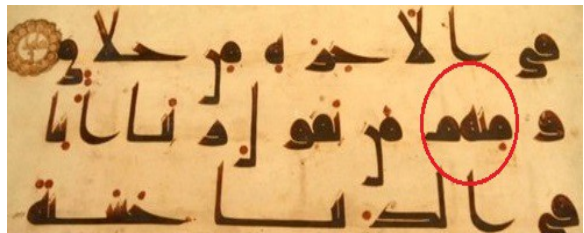 في الاخرة من خلاق
ومنهم من يقول ربنا اتنا
في الدنيا حسنة